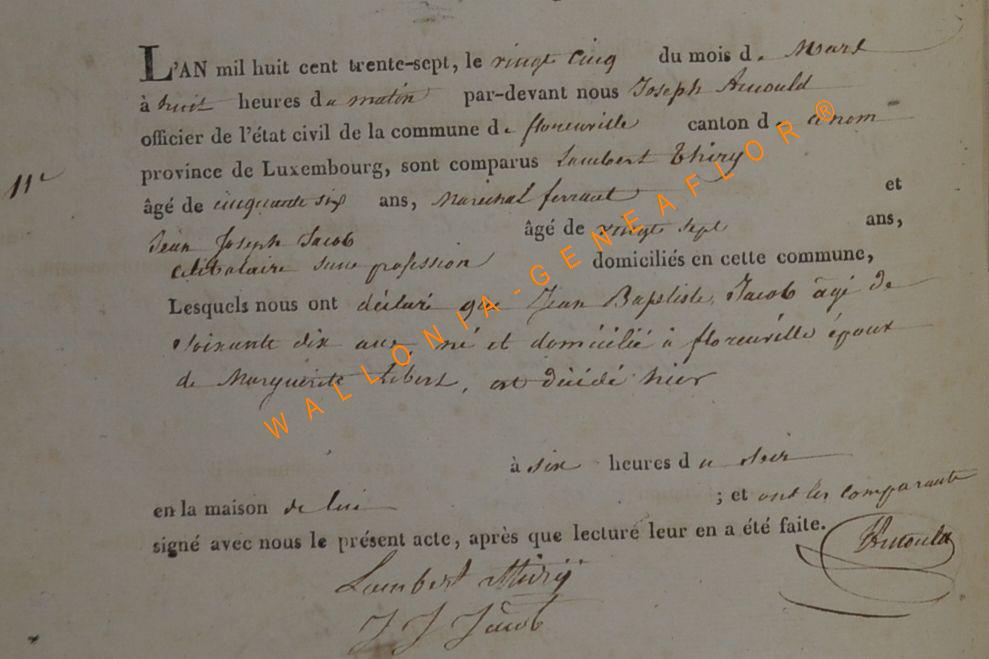 L'AN mil huit cent trente-sept, le vingt cinq du mois de Mars
à huit heures du matin par-devant nous Joseph Arnould
officier de l'état civil de la commune de florenville canton d. ce nom
province de Luxembourg, sont comparus Lambert Thiry
11e
âgé de cinquante six ans, Maréchal ferrant et
Jean Joseph Jacob âgé de vingt sept ans,
célibataire sans profession domiciliés en cette commune,
Lesquels nous ont déclaré que Jean Baptiste Jacob âgé de
soixante dix ans, né et domicilié à florenville époux
de Marguerite Libert, est décédé hier
à six heures du soir
en la maison de lui ; et ont les comparants
signé avec nous le présent acte, après que lecture leur en a été faite.
Arnould
Lambert Thiry
J J Jacob
WALLONIA-GENEAFLOR®